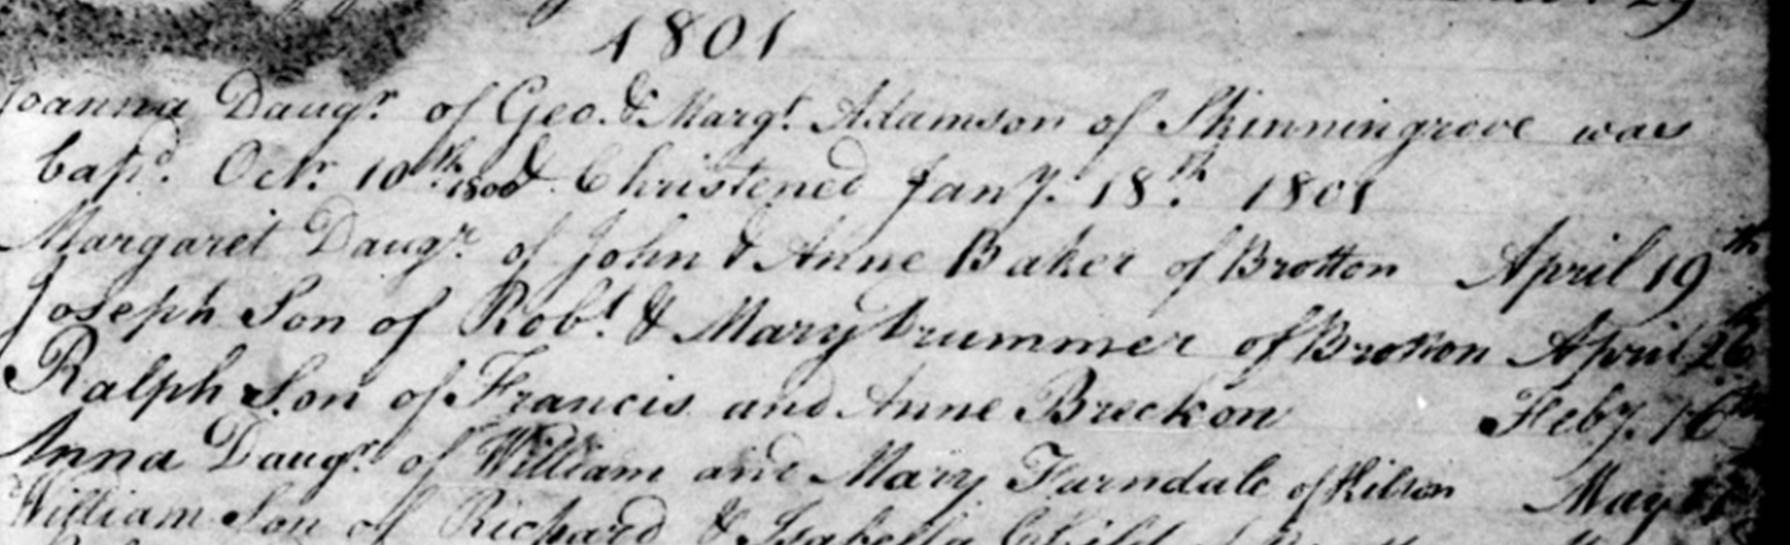 29
1801
Joanna Daugr. of Geo. & Margt. Adamson of Skinningrove was
bapd. Octr. 10th. 1800 & Christened Jany. 18th. 1801
Margaret Daugr. of John & Anne Baker of Brotton April 19th
Joseph Son of Robt. & Mary of Brotton April 26
Ralph Son of Francis and Anne Breckon Feby. 16th
Anna Daugr. of William and Mary Farndale of Kilton May
William Son of Richard & Isabella Child of